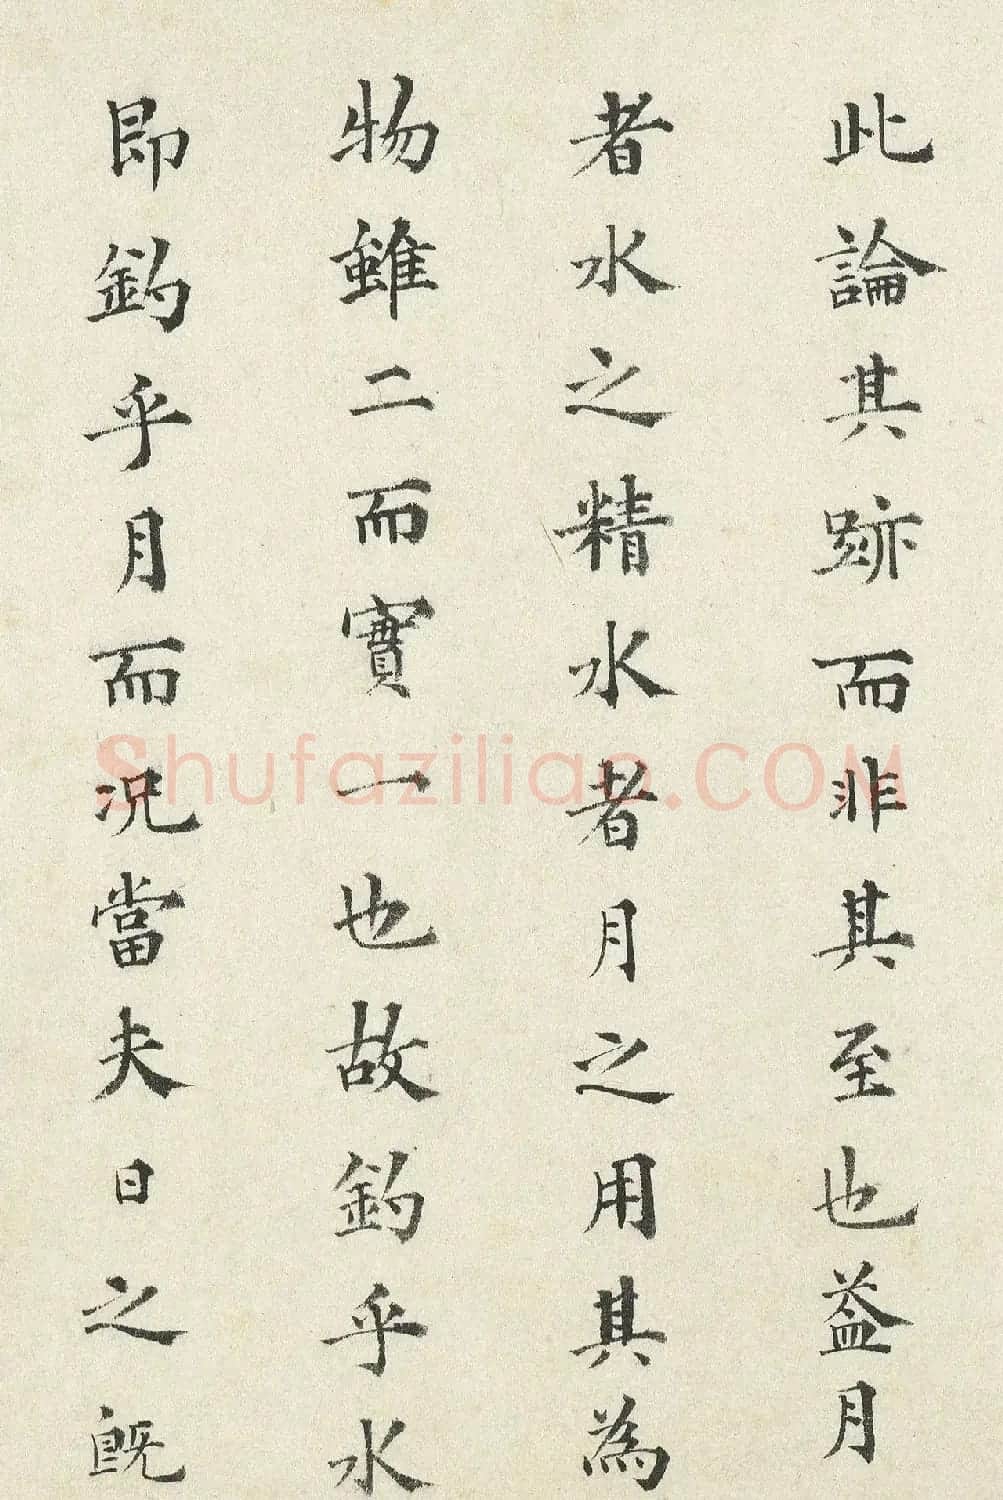 此論其跡而非其至也葢月
者水之精水者月之用其為
物雖二而實一也故釣乎水
即釣乎月而況當夫日之既
Shufaziliao.COM